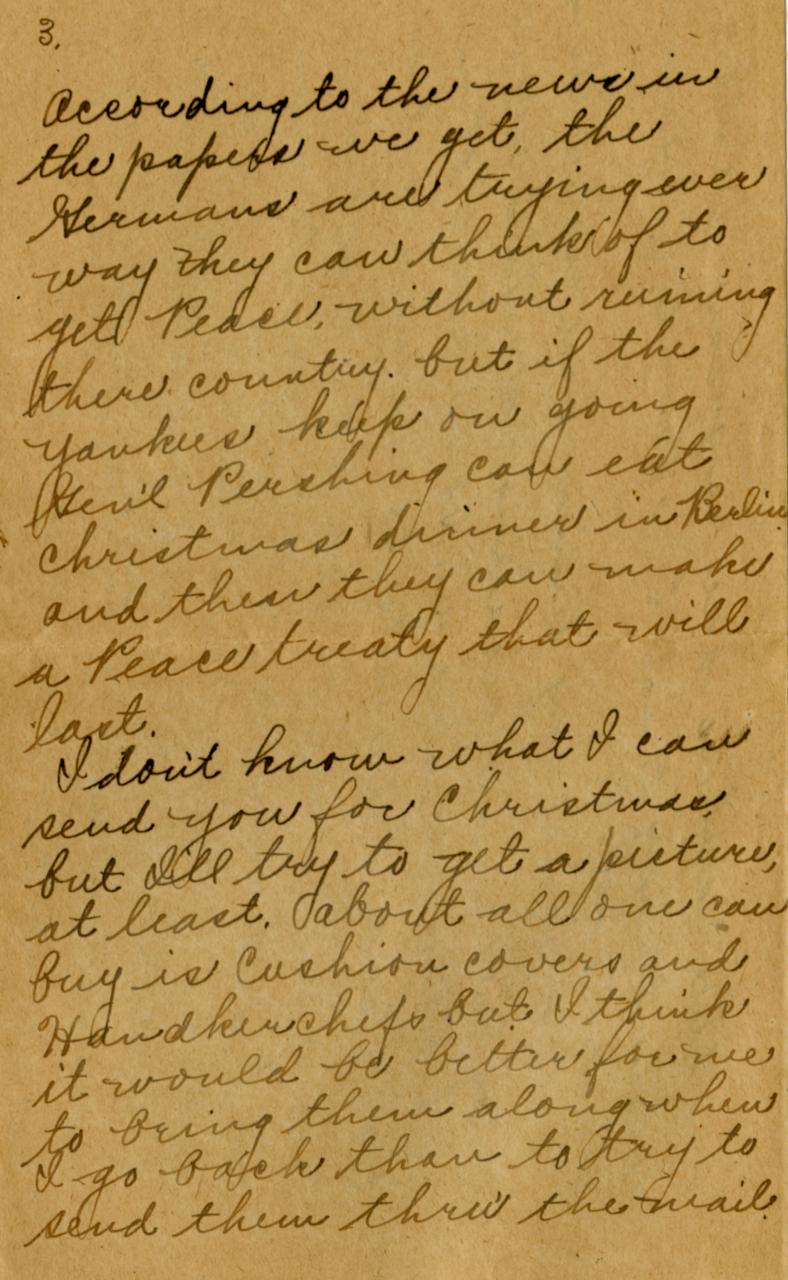 3.
According to the news in
the papers we get, the
Germans are trying ever
way they can think of to
get Peace, without ruining
there country. but if the
Yankees keep on going
Gen'l Pershing can eat
Christmas dinner in Berlin
and then they can make
a Peace treaty that will
last.
I don't know what I can
send you for Christmas,
but I'll try to get a picture,
at least. about all one can
buy is Cushion covers and
Handkerchefs but I think
it would be better for me
to bring them along when
I go back than to try to
send them thru' the mail.